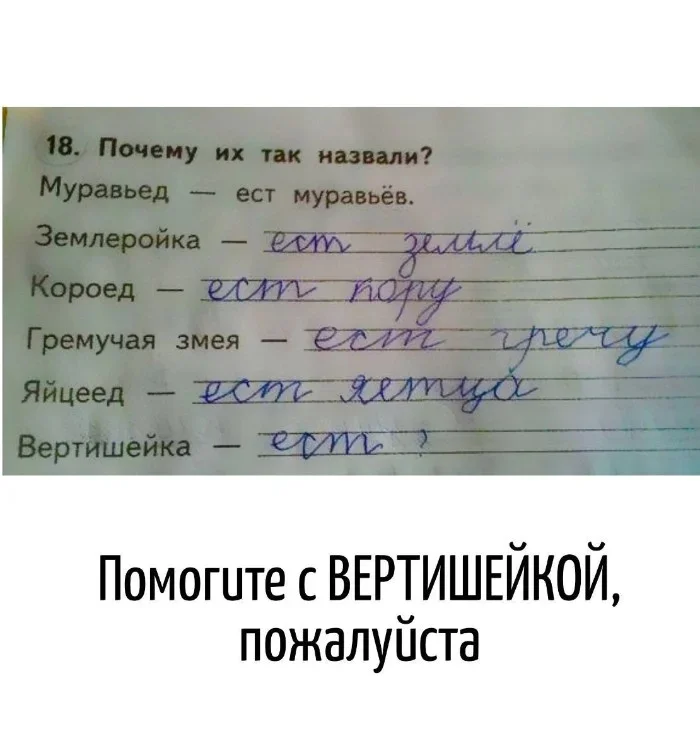 18. Почему их так назвали?
Муравьед — ест муравьёв.
Землеройка — ест землё
Короед — ест кору
Гремучая змея — ест гречу
Яйцеед — ест яетца
Вертишейка — ест ?
Помогите с ВЕРТИШЕЙКОЙ,
пожалуйста